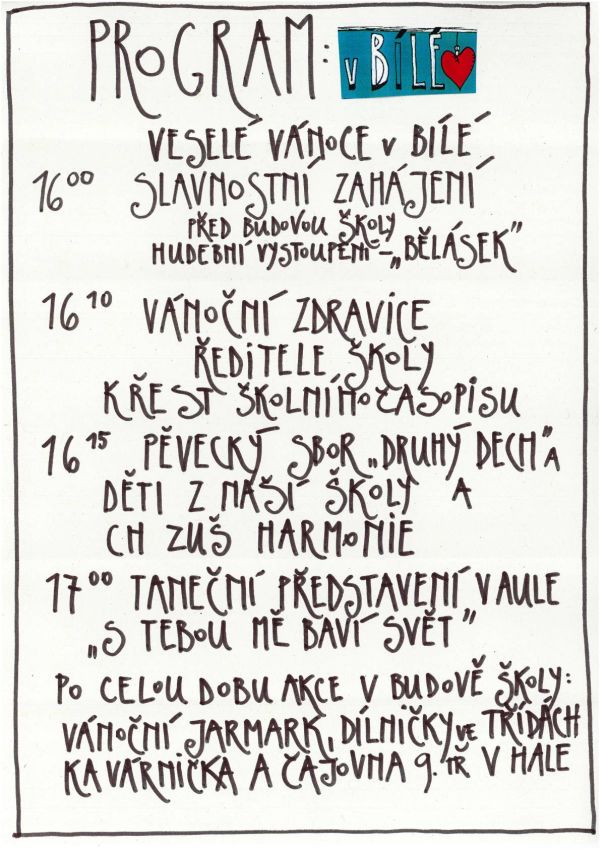 PROGRAM: V BÍLÉ
VESELÉ VÁNOCE V BÍLÉ
16⁰⁰ SLAVNOSTNÍ ZAHÁJENÍ
PŘED BUDOVOU ŠKOLY
HUDEBNÍ VYSTOUPENÍ – „BĚLÁSEK"
16¹⁰ VÁNOČNÍ ZDRAVICE
ŘEDITELE ŠKOLY
KŘEST ŠKOLNÍHO ČASOPISU
16¹⁵ PĚVECKÝ SBOR „DRUHÝ DECH" A
DĚTI Z NAŠÍ ŠKOLY A
CH ZUŠ HARMONIE
17⁰⁰ TANEČNÍ PŘEDSTAVENÍ V AULE
„S TEBOU MĚ BAVÍ SVĚT"
PO CELOU DOBU AKCE V BUDOVĚ ŠKOLY:
VÁNOČNÍ JARMARK, DÍLNIČKY VE TŘÍDÁCH
KAVÁRNIČKA A ČAJOVNA 9. TŘ V HALE